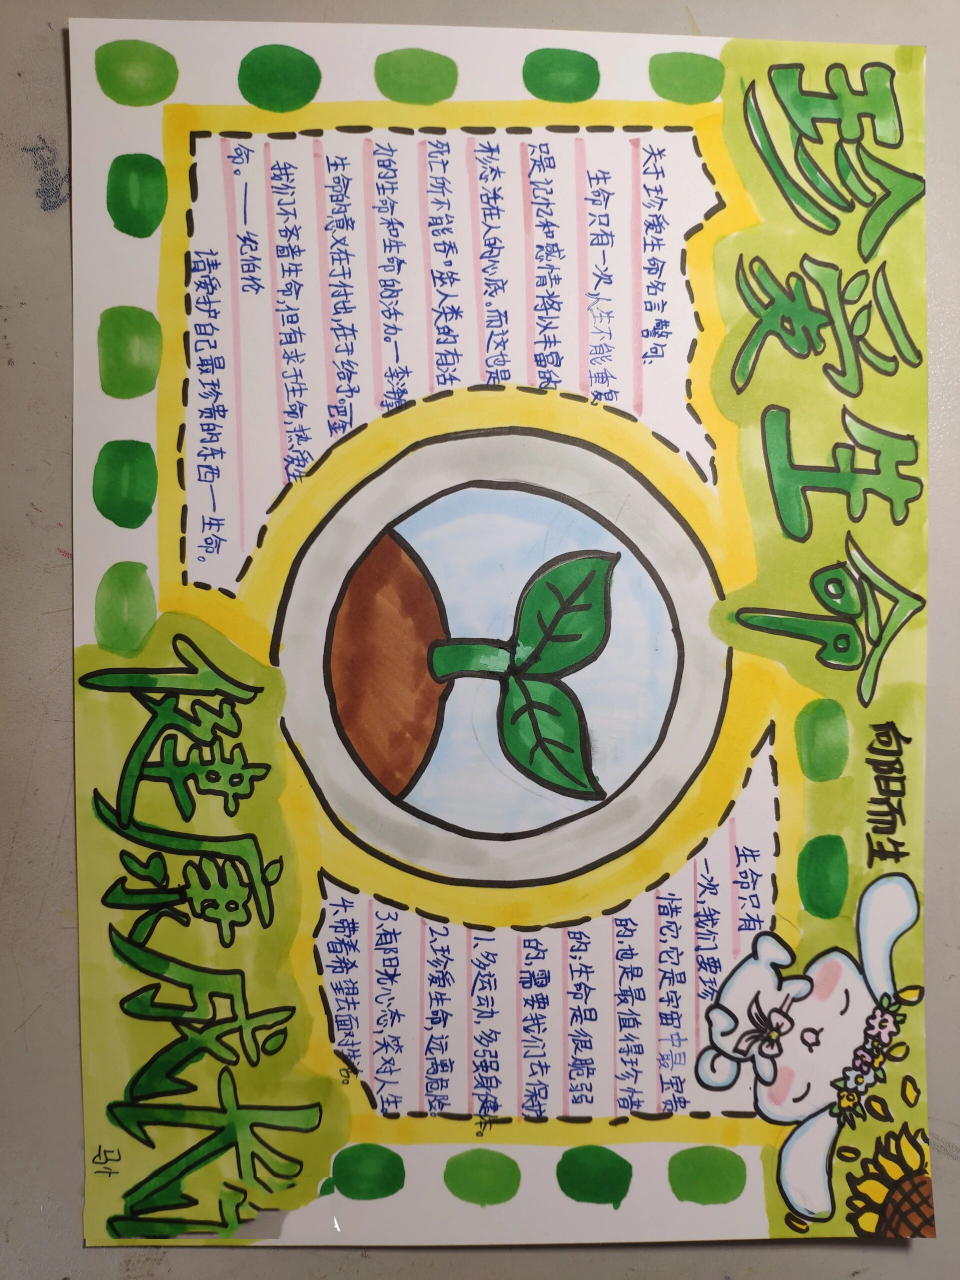 珍爱生命
向阳而生
关于珍爱生命名言警句:
生命只有一次,人生不能重复,
只是记忆和感情将从丰富的
形态活在人的心底。而这也是
死亡所不能吞噬人类的有活
力的生命和生命的活力。一李瀚
生命的意义在于付出,在于给予。一巴金
我们不吝啬生命,但有求于生命,热爱生
命。——纪伯伦
请爱护自己最珍贵的东西一生命。
生命只有
一次,我们要珍
惜它,它是宇宙中最宝贵
的,也是最值得珍惜
的;生命是很脆弱
的,需要我们去保护
1.多运动,多强身健体。
2.珍爱生命,远离危险。
3.有阳光心态,笑对人生
4.带着希望去面对生活。
健康成长